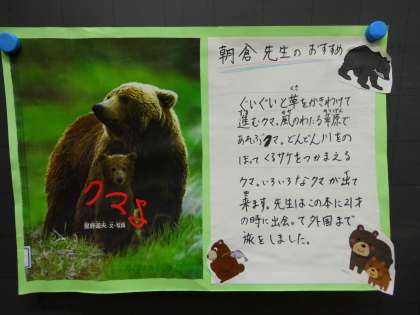 クマよ
星野道夫 文・写真
朝倉先生のおすすめ
ぐいぐいと草をかきわけて
進むクマ。風のわたる草原で
あそぶクマ。どんどん川をの
ぼってくるサケをつかまえる
クマ。いろいろなクマが出て
来ます。先生はこの本に21才
の時に出会って外国まで
旅をしました。